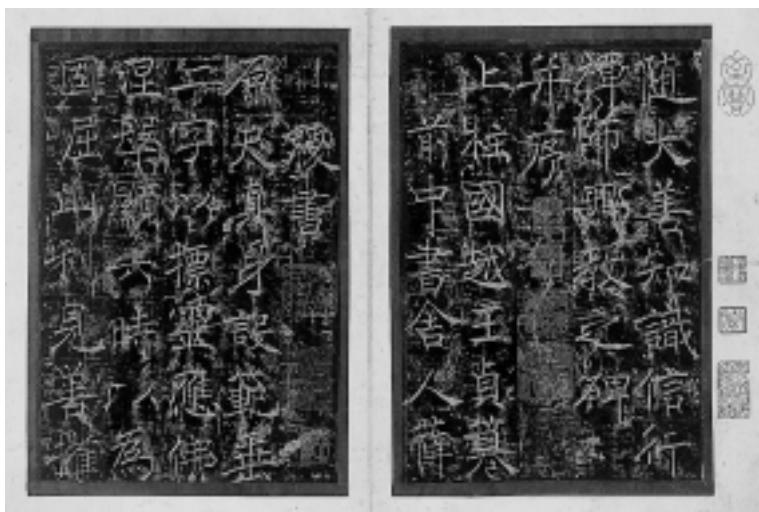 随大善知識信行
禪師興教之碑
并序
上柱國越王貞
前中書舍人薛
稷書
原夫真身設範垂
二字以標靈應佛
涅槃顯六時以為
屈此利見善權